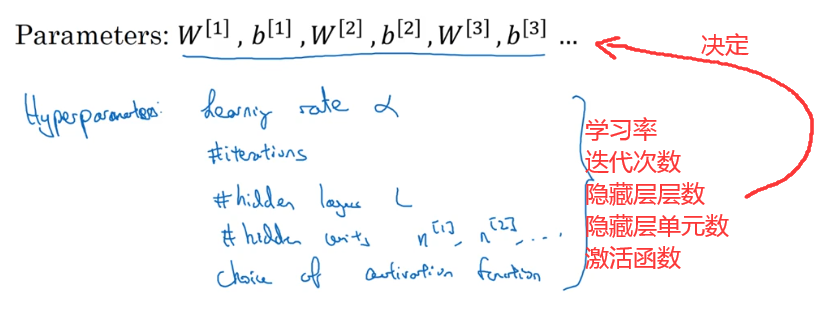 Parameters: W^[1], b^[1], W^[2], b^[2], W^[3], b^[3] ...
决定
Hyperparameters: Learning rate α
学习率
#iterations
迭代次数
#hidden layers L
隐藏层层数
#hidden units n^[1], n^[2], ...
隐藏层单元数
choice of activation function
激活函数